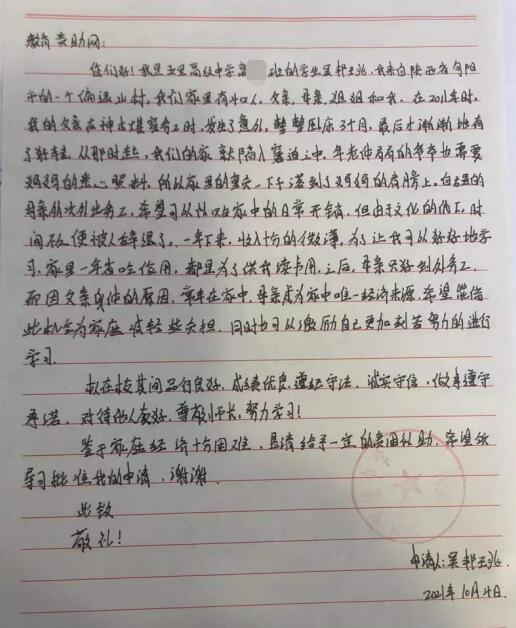 教育资助网:
您们好!我是玉皇高级中学高 班的学生吴邦玉兆,我来自陕西省旬阳
市的一个偏远山村,我们家里有四口人,父亲、母亲、姐姐和我,在2011年时,
我的父亲在神木煤窑务工时,发生了意外,整整卧床3个月,最后才渐渐地有
了好转,从那时起,我们的家就陷入窘迫之中,年老体弱的爷爷也需要
妈妈的悉心照料,所以家里的重天一下子落到了妈妈的肩膀上,自强的
母亲外出务工,希望可以供给家中的日常开销,但由于文化的低下,时
间不便被人辞退了。一年下来,收入十分的微薄,为了让我可以好好地学
习,家里一年省吃俭用,都是为了供我读书用,之后,母亲只好到外务工,
而因父亲身体的原因,常年在家中,母亲成为家中唯一经济来源,希望能借
此机会为家庭减轻些负担,同时也可以激励自己更加刻苦努力的进行
学习。
我在校其间品行良好,成绩优良,遵纪守法,诚实守信,做事遵守
承诺,对待他人友好,尊敬师长,努力学习!
鉴于家庭经济十分困难,恳请给予一定的资困扶助,希望领
导可批准我的申请,谢谢。
此致
敬礼!
申请人:吴邦玉兆
2021年10月4日.